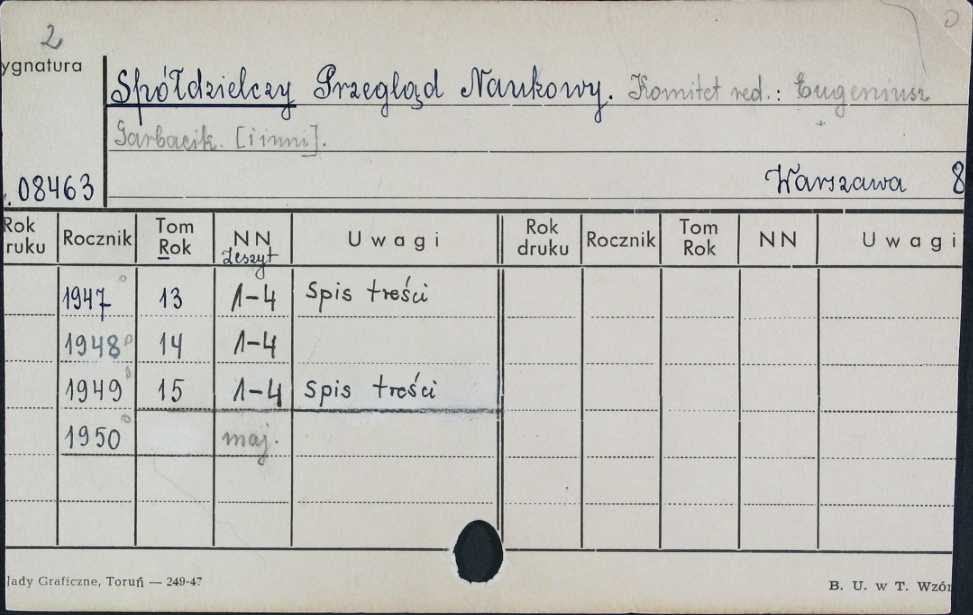 2
ygnatura
Spółdzielczy Przegląd Naukowy. Komitet red.: Eugeniusz
Garbacik. [i inni].
08463
Warszawa 8
Rok druku Rocznik Tom Rok NN Zeszyt Uwagi Rok druku Rocznik Tom Rok NN Uwagi
1947 13 1-4 Spis treści
1948 14 1-4
1949 15 1-4 Spis treści
1950 maj.
łady Graficzne, Toruń — 249-47
B. U. w T. Wzór